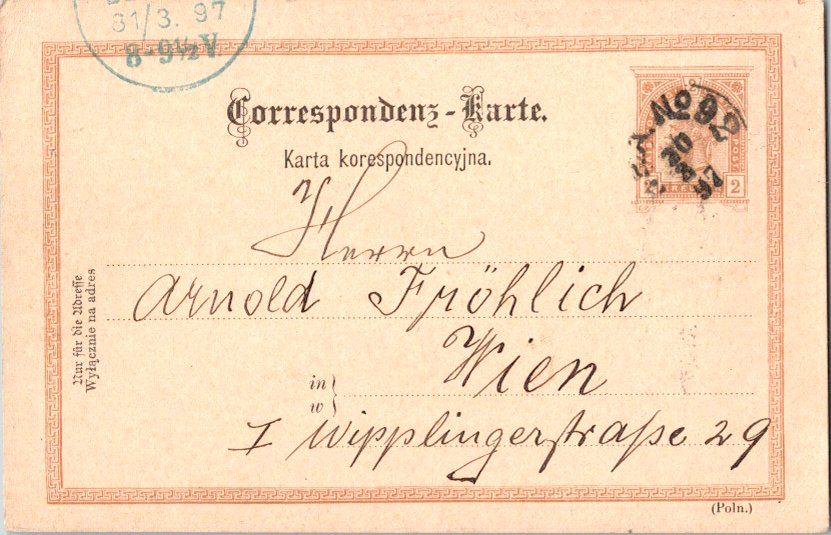 31/3. 97
8-9½V
Correspondenz-Karte.
Karta korespondencyjna.
No 92
97
2
2
Herrn
Arnold Fröhlich
Wien
in
w
I Wipplingerstraße 29
Nur für die Adresse
Wyłącznie na adres
(Poln.)